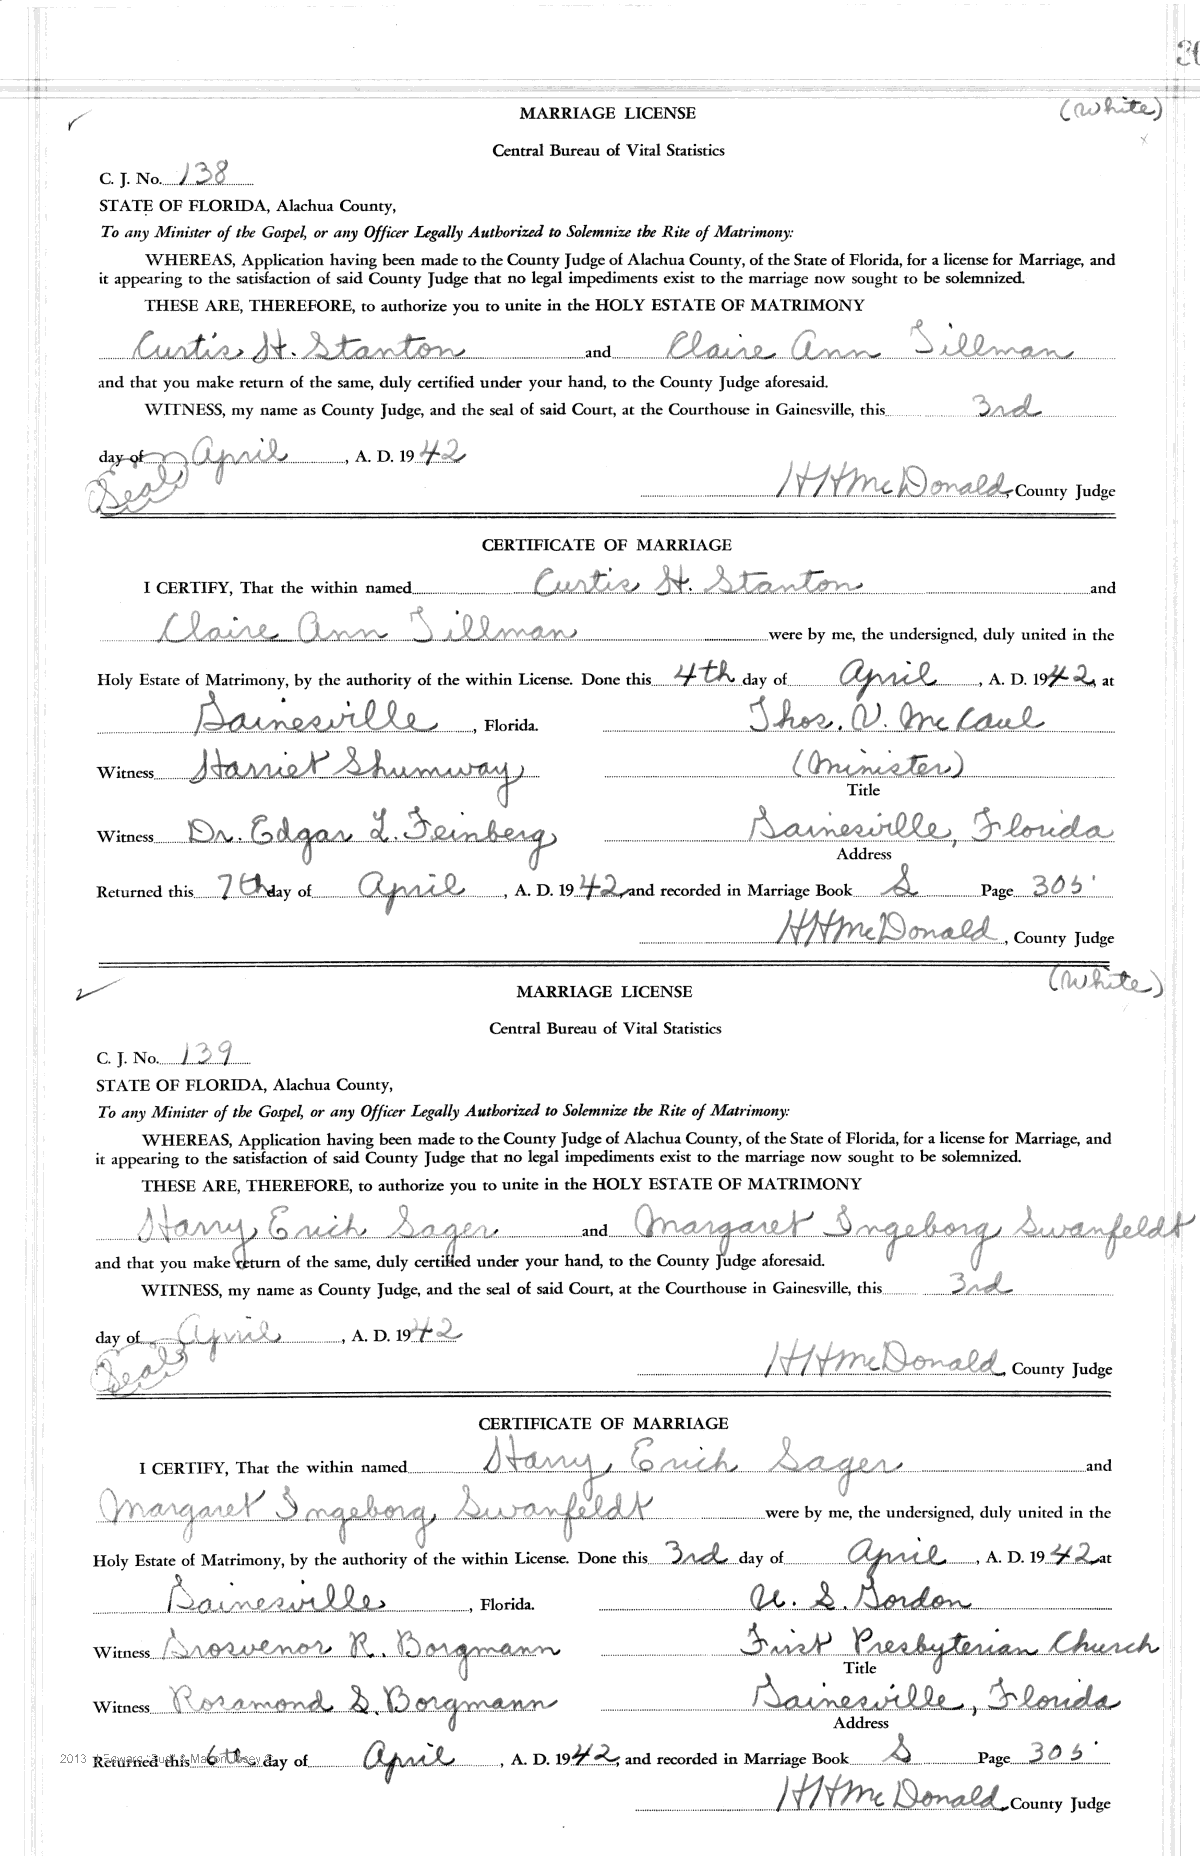 (White)
MARRIAGE LICENSE
Central Bureau of Vital Statistics
C. J. No. 138
STATE OF FLORIDA, Alachua County,
To any Minister of the Gospel, or any Officer Legally Authorized to Solemnize the Rite of Matrimony:
WHEREAS, Application having been made to the County Judge of Alachua County, of the State of Florida, for a license for Marriage, and
it appearing to the satisfaction of said County Judge that no legal impediments exist to the marriage now sought to be solemnized.
THESE ARE, THEREFORE, to authorize you to unite in the HOLY ESTATE OF MATRIMONY
Curtis H. Stanton and Claire Ann Tillman
and that you make return of the same, duly certified under your hand, to the County Judge aforesaid.
WITNESS, my name as County Judge, and the seal of said Court, at the Courthouse in Gainesville, this 3rd
day of April, A. D. 1942
(Seal)
HHMcDonald, County Judge
CERTIFICATE OF MARRIAGE
I CERTIFY, That the within named Curtis H. Stanton and
Claire Ann Tillman were by me, the undersigned, duly united in the
Holy Estate of Matrimony, by the authority of the within License. Done this 4th day of April, A. D. 1942, at
Gainesville, Florida. Thos. V. McCaul
Witness Harriet Shumway (Minister)
Title
Witness Dr. Edgar L. Feinberg Gainesville, Florida
Address
Returned this 7th day of April, A. D. 1942, and recorded in Marriage Book S Page 305
HHMcDonald, County Judge
(White)
MARRIAGE LICENSE
Central Bureau of Vital Statistics
C. J. No. 139
STATE OF FLORIDA, Alachua County,
To any Minister of the Gospel, or any Officer Legally Authorized to Solemnize the Rite of Matrimony:
WHEREAS, Application having been made to the County Judge of Alachua County, of the State of Florida, for a license for Marriage, and
it appearing to the satisfaction of said County Judge that no legal impediments exist to the marriage now sought to be solemnized.
THESE ARE, THEREFORE, to authorize you to unite in the HOLY ESTATE OF MATRIMONY
Harry Erich Sager and Margaret Ingeborg Swanfeldt
and that you make return of the same, duly certified under your hand, to the County Judge aforesaid.
WITNESS, my name as County Judge, and the seal of said Court, at the Courthouse in Gainesville, this 3rd
day of April, A. D. 1942
(Seal)
HHMcDonald, County Judge
CERTIFICATE OF MARRIAGE
I CERTIFY, That the within named Harry Erich Sager and
Margaret Ingeborg Swanfeldt were by me, the undersigned, duly united in the
Holy Estate of Matrimony, by the authority of the within License. Done this 3rd day of April, A. D. 1942 at
Gainesville, Florida. U. S. Gordon
Witness Grosvenor R. Borgmann First Presbyterian Church
Title
Witness Rosamond S. Borgmann Gainesville, Florida
Address
2013
Returned this 6th day of April, A. D. 1942, and recorded in Marriage Book S Page 305
HHMcDonald, County Judge